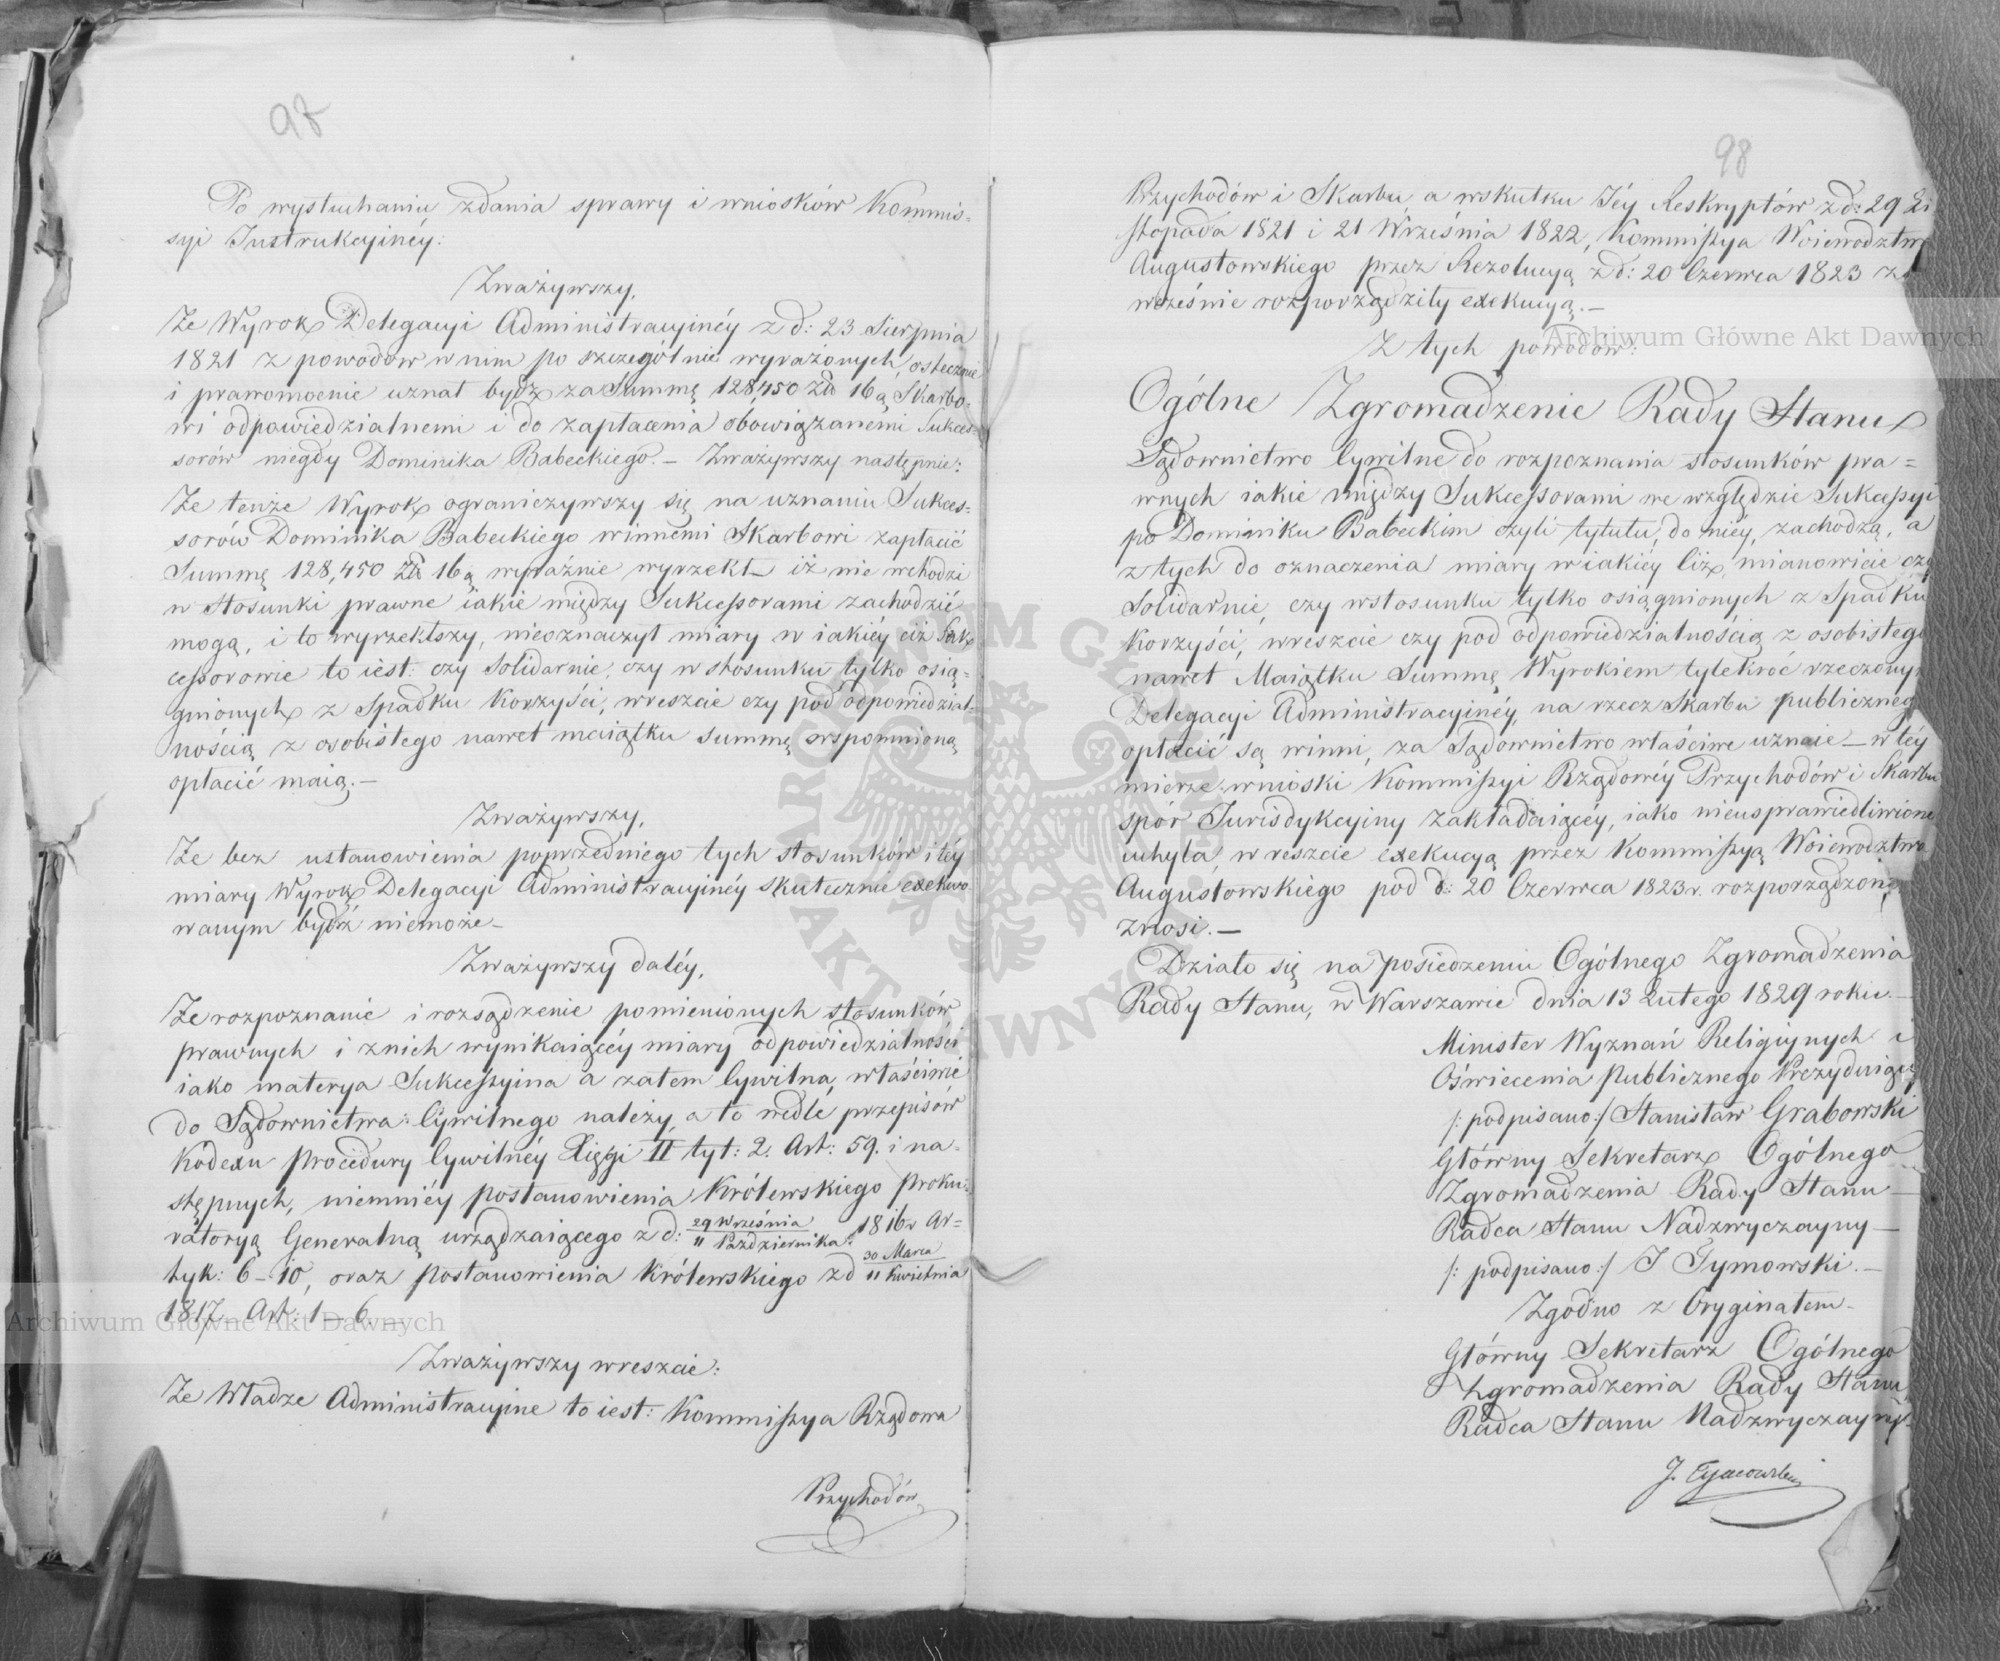 98
Po wysłuchaniu zdania sprawy i wniosków Kommis-
syi Instrukcyinéy:
Zważywszy,
Że Wyrok Delegacyi Administracyinéy z d: 23 Sierpnia
1821 z powodów w nim po szczególnie wyrażonych, ostecznie
i prawomocnie uznał bydź za Summę 128,450 Zł 16 g Skarbo-
wi odpowiedzialnemi i do zapłacenia obowiązanemi Sukces-
sorów niegdy Dominika Babeckiego. – Zważywszy następnie:
Że tenże Wyrok ograniczywszy się na uznaniu Sukces-
sorów Dominika Babeckiego winnemi Skarbowi zapłacić
Summę 128,450 Zł 16 g wyraźnie wyrzekł – iż nie wchodzi
w Stosunki prawne iakie między Sukcessorami zachodzić
mogą, i to wyrzekłszy, nieoznaczył miary w iakiéy ciż Suk-
cessorowie to iest: czy Solidarnie, czy w stosunku tylko osią-
gnionych z Spadku Korzyści, wreszcie czy pod odpowiedzial-
nością z osobistego nawet maiątku summę wspomnioną
opłacić maią. –
Zważywszy,
Że bez ustanowienia poprzedniego tych stosunków i téy
miary Wyrok Delegacyi Administracyinéy skutecznie exekwo-
wanym bydź niemoże –
Zważywszy daléy,
Że rozpoznanie i rozsądzenie pomienionych stosunków
prawnych i z nich wynikaiącéy miary odpowiedzialności
iako materya Sukcessyina a zatem Cywilna, właściwie
do Sądownictwa Cywilnego należy, a to wedle przepisów
Kodexu Procedury Cywilnéy Xięgi II tyt: 2. Art: 59. i na-
stępnych, niemniéy postanowienia Królewskiego Proku-
ratoryą Generalną urządzaiącego z d: 29 Września / 11 Października 1816 r Ar-
tyk: 6 – 10, oraz Postanowienia Królewskiego z d 30 Marca / 11 Kwietnia
1817 Art: 1 – 6.
Zważywszy wreszcie:
Że Władze Administracyine to iest: Kommissya Rządowa
Przychodów
98
Przychodów i Skarbu a wskutku Jéy Reskryptów z d: 29 Li
stopada 1821 i 21 Września 1822, Kommissya Woiewodztwa
Augustowskiego przez Rezolucyą z d: 20 Czerwca 1823 za
wcześnie rozporządziły exekucyą. –
Z tych powodów:
Ogólne Zgromadzenie Rady Stanu
Sądownictwo Cywilne do rozpoznania stosunków pra-
wnych iakie między Sukcessorami we względzie Sukcessyi
po Dominiku Babeckim czyli tytułu do niéy, zachodzą, a
z tych do oznaczenia miary w iakiéy ciż, mianowicie czy
Solidarnie, czy wstosunku tylko osiągnionych z Spadku
Korzyści, wreszcie czy pod odpowiedzialnością z osobistego
nawet Maiątku Summę Wyrokiem tylekroć rzeczonym
Delegacyi Administracyinéy, na rzecz Skarbu publicznego
opłacić są winni, za Sądownictwo właściwe uznaie – w téy
mierze wnioski Kommissyi Rządowéy Przychodów i Skarbu
spór Jurisdykcyiny zakładaiącéy, iako nieusprawiedliwione
uchyla, wreszcie exekucyą przez Kommissyą Woiewodztwa
Augustowskiego pod d: 20 Czerwca 1823 r. rozporządzoną
znosi. –
Działo się na posiedzeniu Ogólnego Zgromadzenia
Rady Stanu, w Warszawie dnia 13 Lutego 1829 roku. –
Minister Wyznań Religijnych i
Oświecenia Publicznego Prezyduiący
/: podpisano :/ Stanisław Grabowski
Główny Sekretarz Ogólnego
Zgromadzenia Rady Stanu –
Radca Stanu Nadzwyczayny –
/: podpisano :/ J Tymowski. –
Zgodno z Oryginałem –
Główny Sekretarz Ogólnego
Zgromadzenia Rady Stanu,
Radca Stanu Nadzwyczayny.
J. Tymowski
Archiwum Główne Akt Dawnych
Archiwum Główne Akt Dawnych
ARCHIWUM GŁÓWNE AKT DAWNYCH